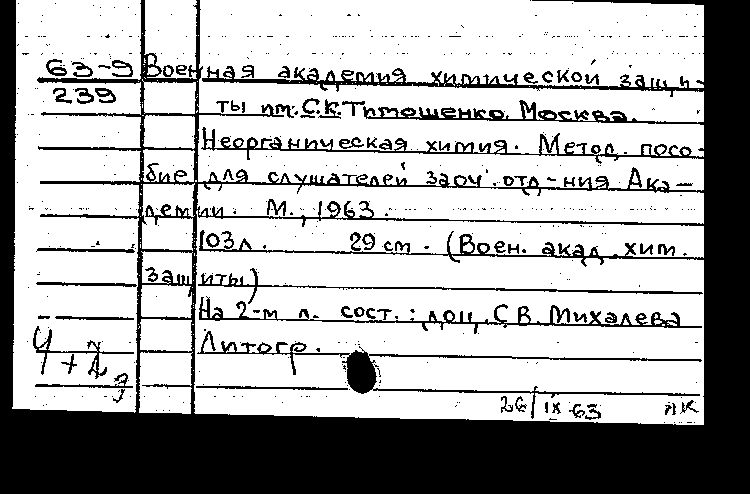 63-9 Военная академия химической защи-
239 ты им. С.К. Тимошенко. Москва.
Неорганическая химия. Метод. посо-
бие для слушателей заоч. отд-ния Ака-
демии. М., 1963.
103 л. 29 см. (Воен. акад. хим.
защиты)
На 2-м л. сост.: доц. С.В. Михалева
Литогр.
26/IX 63